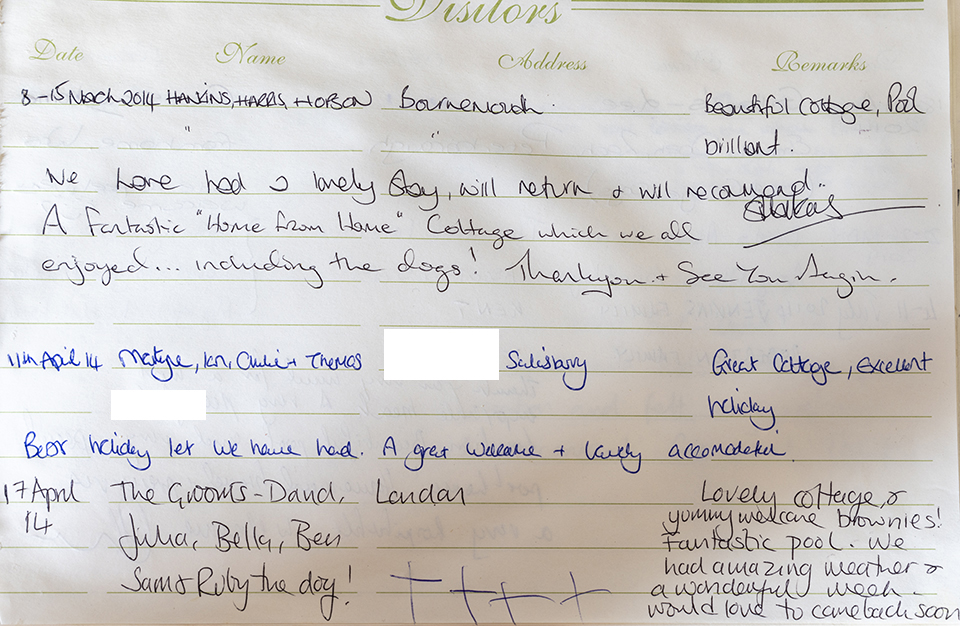 Visitors
Date Name Address Remarks
8-15 March 2014 HANKINS, HARRIS, + HOBSON Bournemouth. Beautiful Cottage, Pool
" " brilliant.
We have had a lovely stay, will return & will recomend.
A Fantastic "Home from Home" Cottage which we all
enjoyed... including the dogs! Thankyou + See You Again.
11th April 14 Martyne, Ian, + Thomas Salisbury Great Cottage, Excellent
holiday
Best holiday let we have had. A great welcome + lovely accomodation.
17 April The Grooms - David, London Lovely cottage, &
14 Julia, Bella, Ben yummy welcome brownies!
Fantastic pool. We
Sam & Ruby the dog! had amazing weather &
a wonderful week.
would love to come back soon